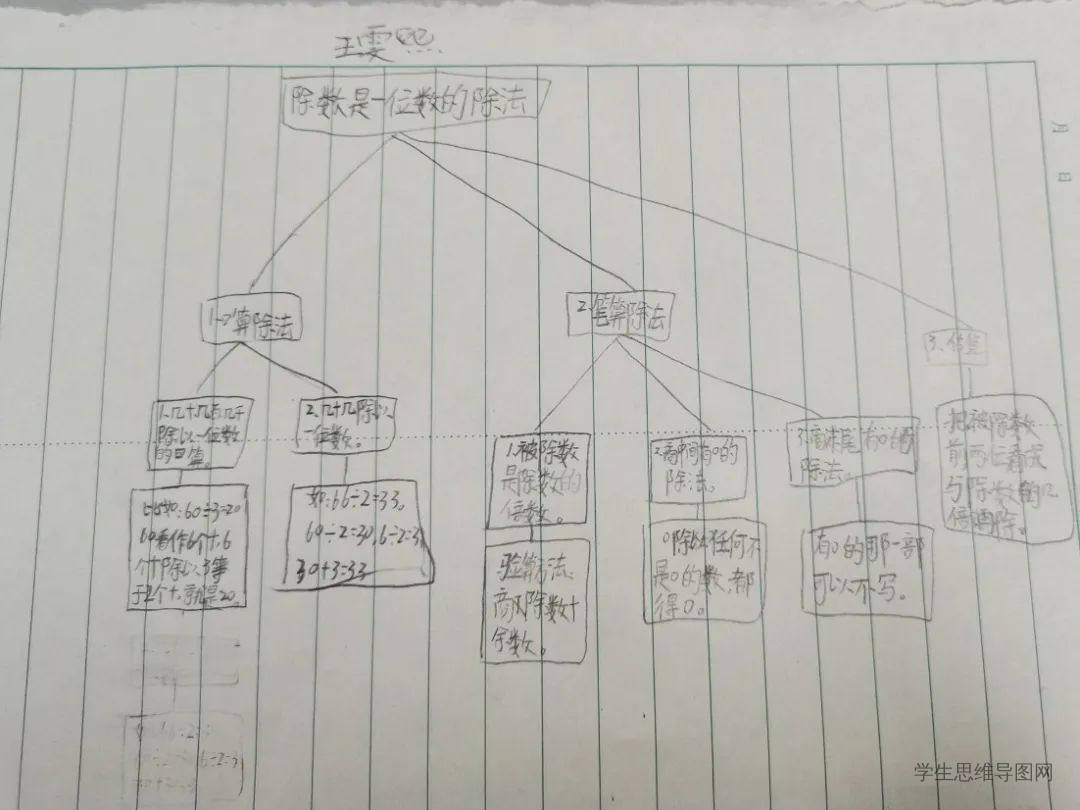 王雯熙
月 日
除数是一位数的除法
1.口算除法
1.几十几百几千
除以一位数
的口算。
比如:60÷3=20
60看作6个十,6
个十除以3等
于2个十.就是20。
2.几十几除以
一位数。
如:66÷2=33。
60÷2=30,6÷2=3
30+3=33
2.笔算除法
1.被除数
是除数的
倍数。
验算方法:
商×除数+
余数。
2.商中间有0的
除法。
0除以任何不
是0的数,都
得0。
3.商末尾有0的
除法。
有0的那一部
可以不写。
3、估算
把被除数
前两位看成
与除数的几
倍再除。
6÷2=3
学生思维导图网